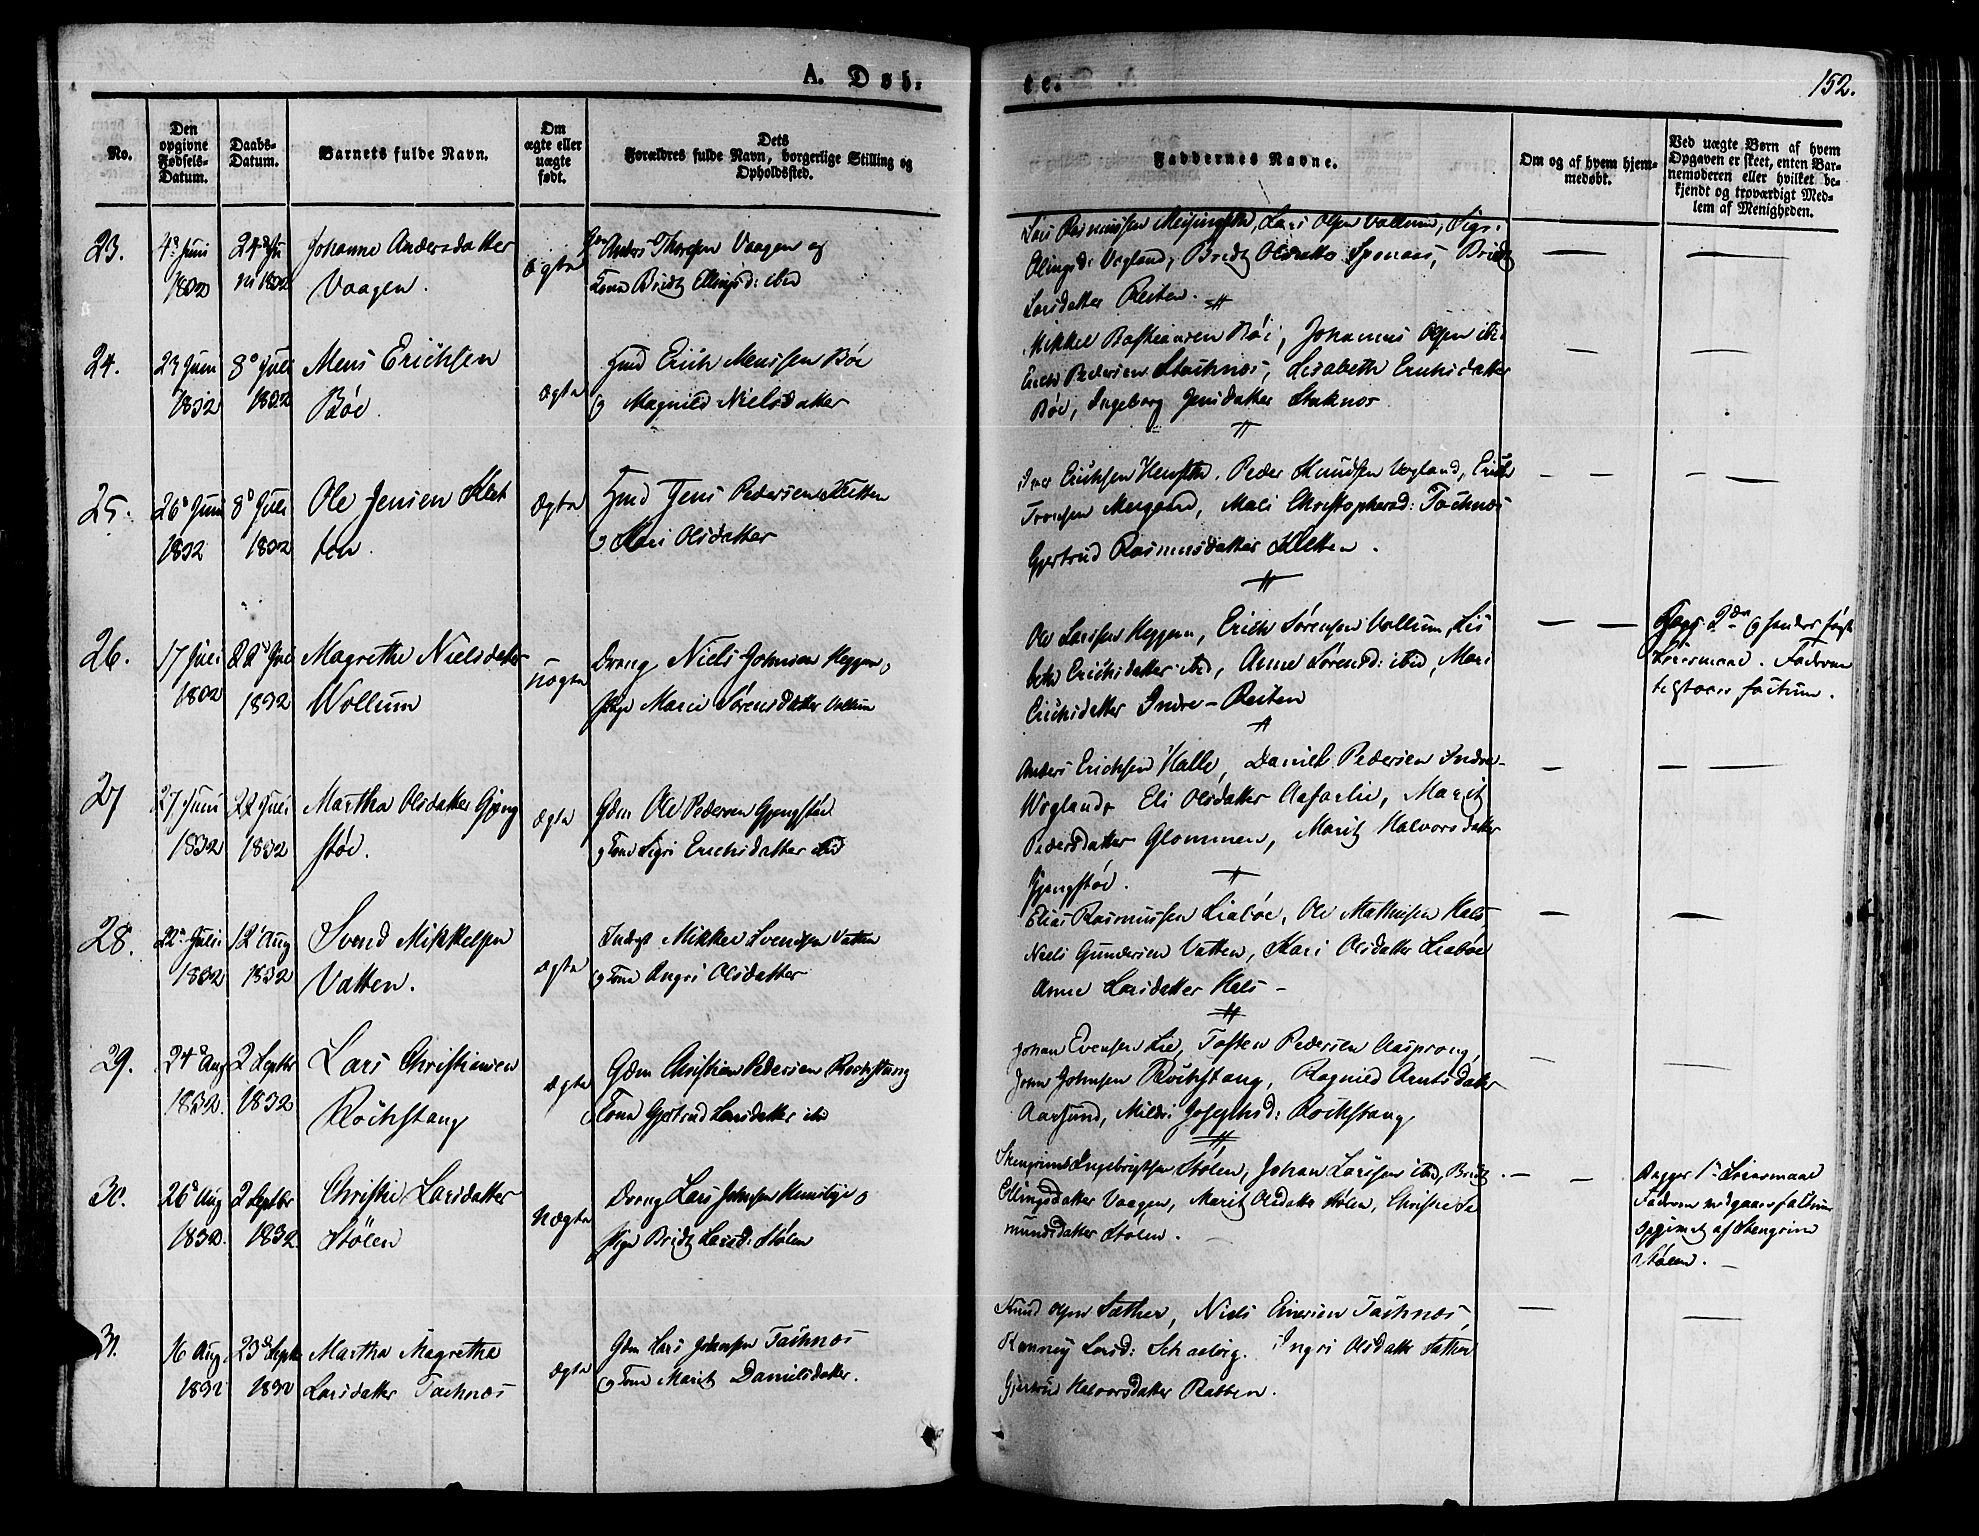 A. Døb-
te.
152.
No.
Den opgivne Fødsels-Datum.
Daabs-Datum.
Barnets fulde Navn.
Om ægte eller uægte født.
Dets Forældres fulde Navn, borgerlige Stilling og Opholdssted.
Faddernes Navne.
Om og af hvem hjem-medøbt.
Ved uægte Børn af hvem Opgaven er skeet, enten Bar-nemoderen eller hvilket be-kjendt og troværdigt Med-lem af Menigheden.
23.
4de Juni
1832
24de Ju
ni 1832
Johanne Andersdatter
Vaagen.
Ægte
Anders Thorsen Vaagen og
Kone Bridt Ellingsd: ibid
Lars Rasmussen Meisingseth, Lars Olsen Vollum, Sigr.
Olingsd: Vogland, Bridt Olsdatter Sponaas, Bridt
Larsdatter Reiten.
24.
23 Juni
1832
8de Juli
1832
Mens Erichsen
Böe.
Ægte
Hmd Erich Menssen Böe
og Magnild Nielsdatter
Mikkel Bastiansen Böe, Johannes Olsen ibi.
Erich Pedersen Staknes, Lisabeth Erichsdatter
Böe, Ingeborg Jensdatter Staknes
25.
26de Juni
1832
8de Juli
1832
Ole Jensen Klet
ten.
Ægte
Hmd Jens Pedersen Kletten
og Mari Olsdatter
Iver Erichsen Henseth, Peder Knudsen Vogland, Erich
Tronsen Meegaard, Mali Christophersd: Taknes
Gjertrud Rasmusdatter Kletten.
26.
17 Juli
1832
22de Juli
1832
Magrethe Nielsdatter
Wollum
uægte
Dreng Niels Johnsen Heggem,
Pige Marie Sörensdatter Vollum
Ole Larssen Heggem, Erich Sörensen Vollum, Lis
beth Erichsdatter ibid, Anne Sörensd: ibid, Mari
Erichsdatter Indre-Reiten
27
27 Juni
1832
22 Juli
1832
Martha Olsdatter Gjeng
stöe.
Ægte
Gdm Ole Pedersen Gjengstöe
og Kone Sigri Erichsdatter ibid
Anders Erichsen Halle, Daniel Pedersen Indre-
Wogland, Eli Olsdatter Aafarlie, Marit
Pedersdatter Glommen, Marit Halvorsdatter
Gjengstöe.
28.
22de Juli
1832
12 Aug
1832
Svend Mikkelsen
Vatten.
ægte
Inderst Mikkel Svendsen Vatten
og Kone Angri Olsdatter
Elias Rasmussen Liaböe, Ole Mathisen Hals
Niels Gundersen Vatten, Kari Olsdatter Liaböe
Anne Larsdatter Hals -
29.
24de Aug
1832.
2 Septbr
1832
Lars Christiansen
Rochstang
ægte
Gdm Christian Pedersen Rochstang
Kone Gjertrud Larsdatter ibid
Johan Evensen Lie, Tosten Pedersen Aasprong,
John Johnsen Rochstang, Ragnild Arntsdatter
Aarsund, Mildri Josephsd: Rochstang
30.
26de Aug
1832.
2 Septbr
1832.
Christie Larsdatter
Stölen
Uægte
Dreng Lars Johnsen
Pige Bridt Larsd: Stölen
Stengrim Ingebrigtsen Stölen, Johan Larssen ibid, Bridt
Ellingsdatter Vaagen, Marit Olsdatter Stölen, Christie Se
mundsdatter Stölen.
Begges 1ste Leiermaal
Faderen
opgivet af Stengrim
Stölen.
31.
16 Aug
1832
23de Sept
1832
Martha Magretha
Larsdatter Taknes
ægte
Gdm Lars Johnsen Taknes
og Kone Marit Danielsdatter.
Knud Olsen Sæther, Niels Einersen Taknes,
Ranney Larsd: . Ingri Olsdatter Sæther
Gjertrud Halvorsdatter Rabben.